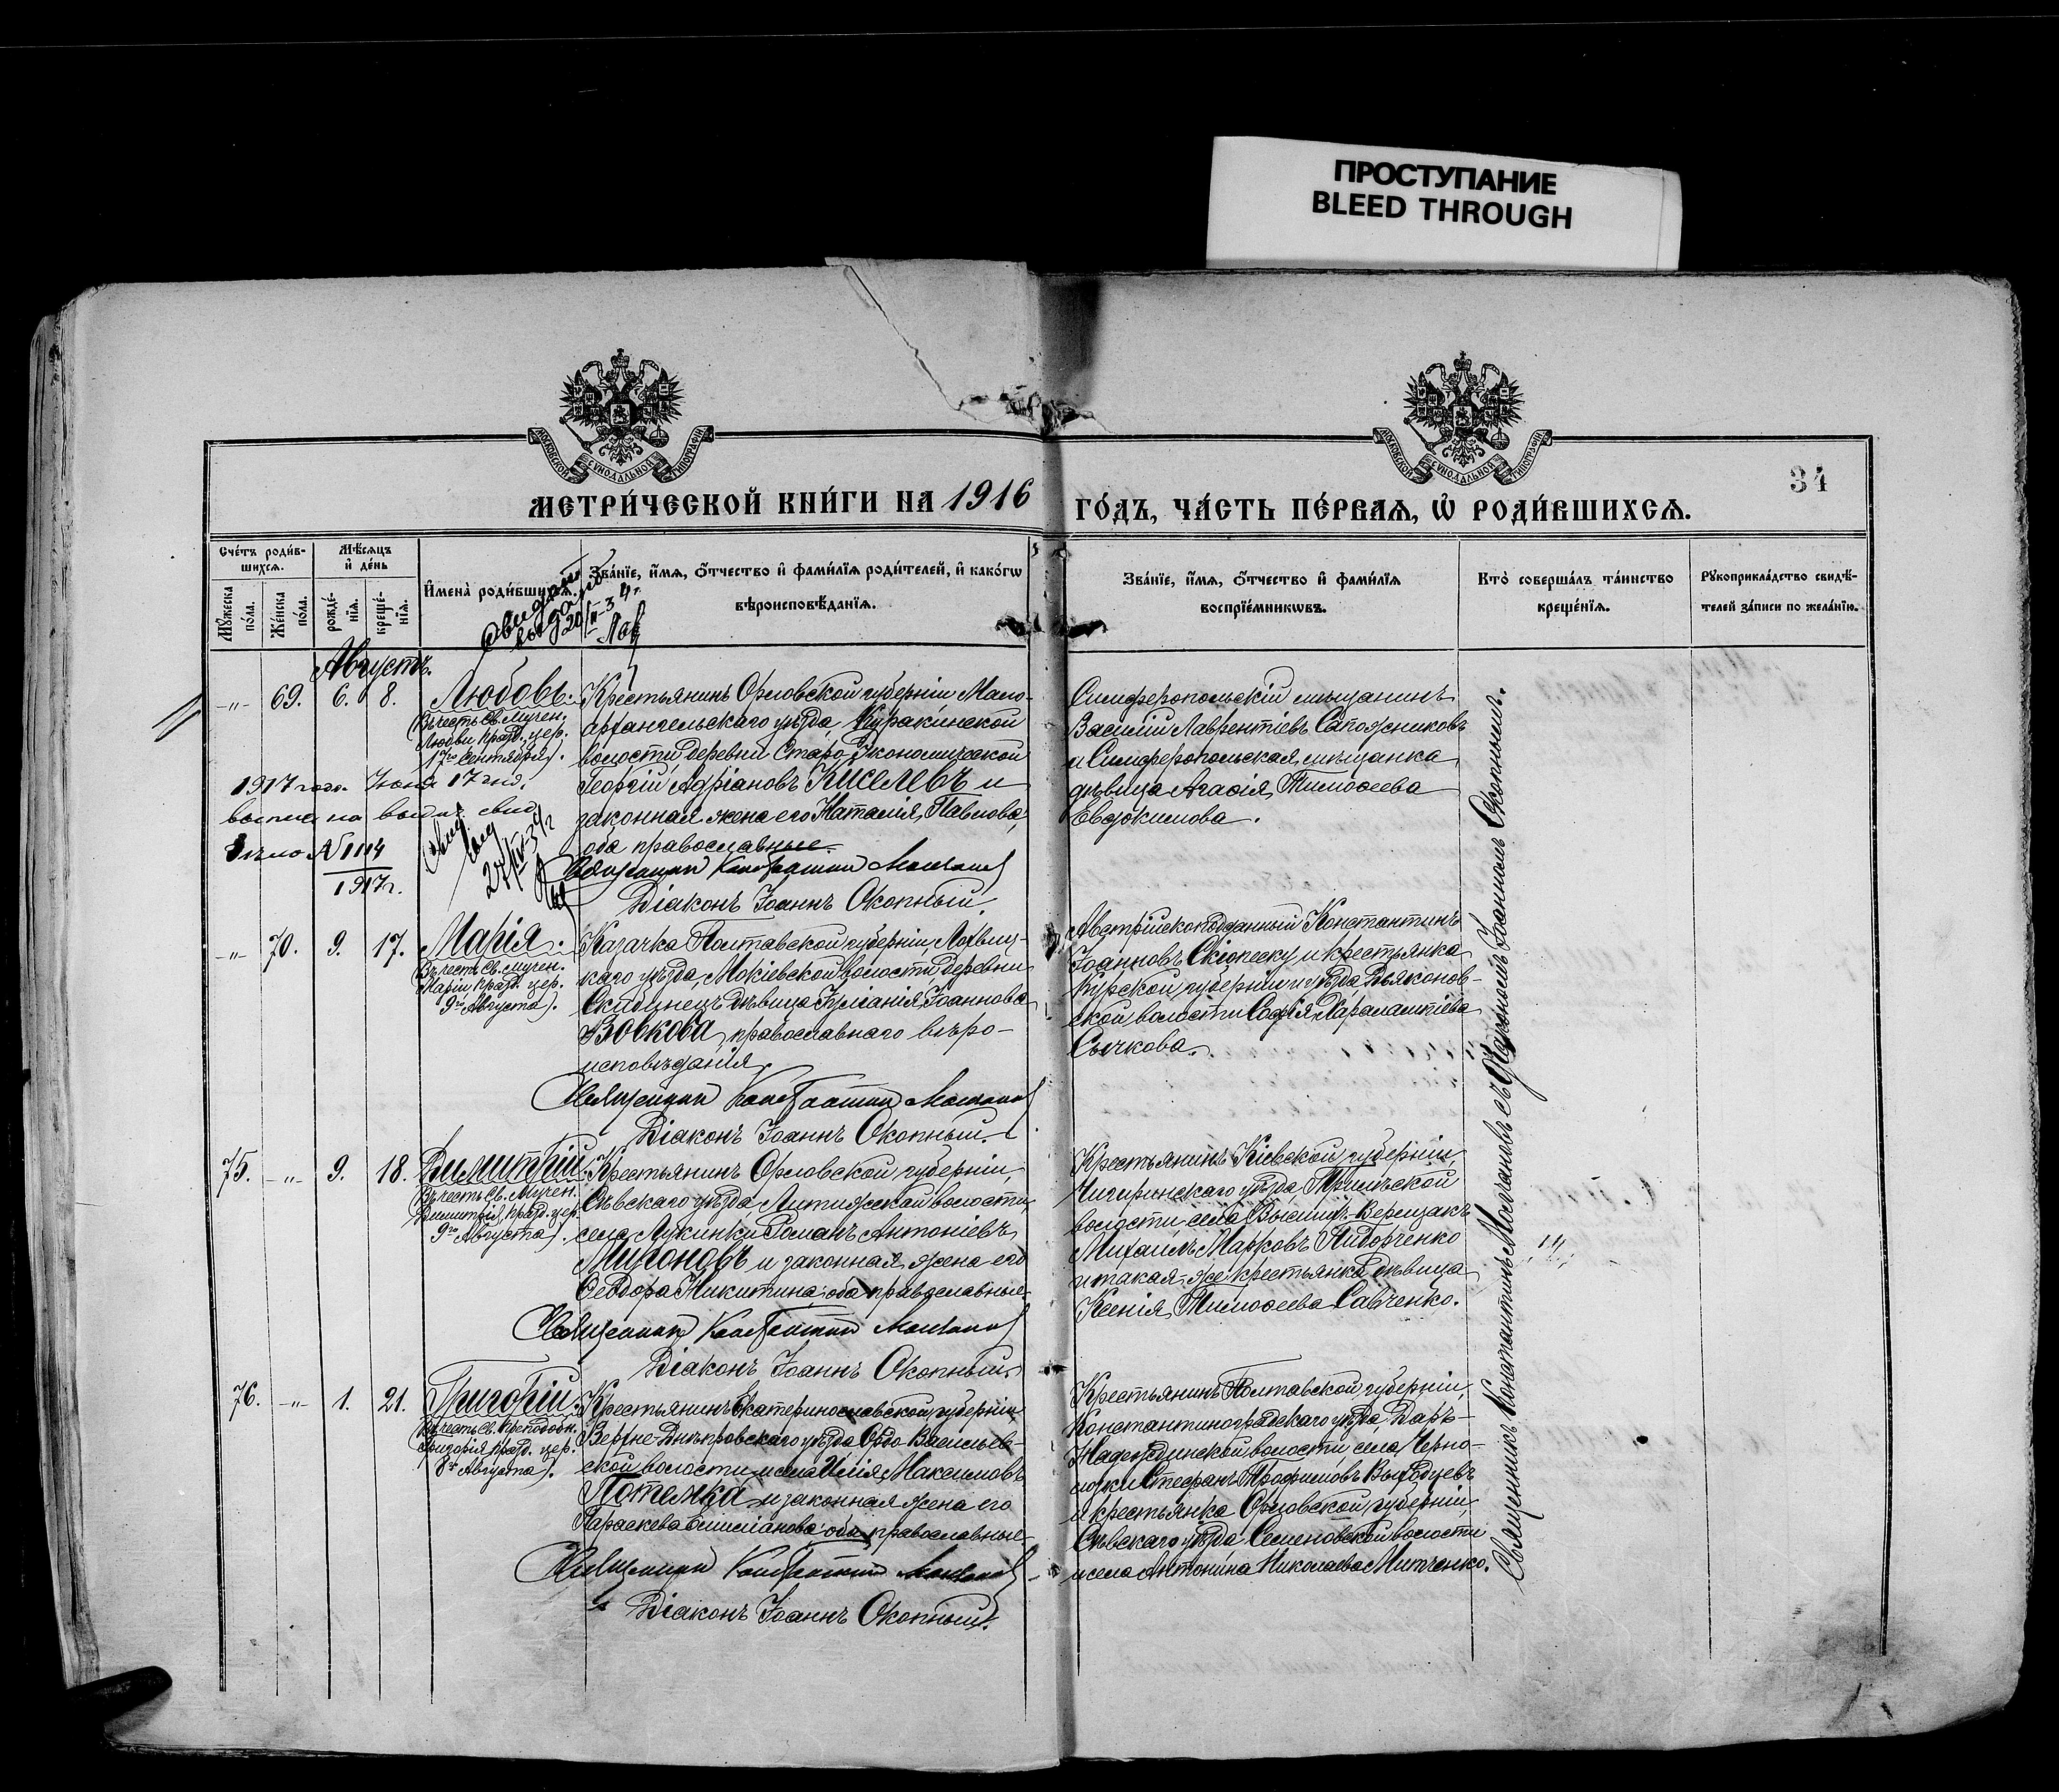 ПРОСТУПАНИЕ
BLEED THROUGH
МОСКОВСКОЙ СѴНОДАЛЬНОЙ ТИПОГРАФІИ
МОСКОВСКОЙ СѴНОДАЛЬНОЙ ТИПОГРАФІИ
34
МЕТРИ́ЧЕСКОЙ КНИ́ГИ НА 1916 ГО́ДЪ, ЧА́СТЬ ПЕ́РВАѦ, Ѡ҆ РОДИ́ВШИХСѦ.
Сче́тъ роди́в-
шихсѧ.
Мѣ́сѧцъ
и҆ де́нь
Мꙋ́жеска
по́ла.
Же́нска
по́ла.
рожде́-
нїѧ.
креще́-
нїѧ.
И҆мена̀ роди́вшихсѧ.
Зва́нїе, и҆́мѧ, ѻ҆́тчество и҆ фами́лїѧ роди́телей, и҆ како́гѡ
вѣроисповѣ́данїѧ.
Зва́нїе, и҆́мѧ, ѻ҆́тчество и҆ фами́лїѧ
воспрїе́мникѡвъ.
Кто̀ соверша́лъ та́инство
креще́нїѧ.
Рꙋкоприкла́дство свидѣ́-
телей за́писи по жела́нїю.
Августъ.
-"- 69. 6. 8. Любовь.
Въ честь Св. Мучен.
Любви празд. цер.
17го Сентября).
Крестьянинъ Орловской губерніи Мало-
архангельскаго уѣзда, Куракинской
волости деревни Старо-Экономической
Георгій Адріановъ Киселевъ и
законная жена его Наталія Павлова,
оба православные.
Священникъ Константинъ
Діаконъ Іоаннъ Окопный.
Симферопольскій мѣщанинъ
Василій Лаврентіевъ Сапожниковъ
и Симферопольская мѣщанка
дѣвица Агафія Тимофеева
Евдокимова.
1917 года. Іюня 17 дня.
№ 1114
1917г.
-"- 70. 9. 17. Марія.
Въ честь Св. мучен.
Маріи празд. цер.
9го Августа).
Казачка Полтавской губерніи, Лохвиц-
каго уѣзда, Мокіевской волости деревни
Скибинецъ дѣвица Іуліанія Іоаннова
Вовкова, православнаго вѣро-
исповѣданія
Священникъ Константинъ
Діаконъ Іоаннъ Окопный.
Австрійскоподданный Константинъ
Іоанновъ и крестьянка
Курской губерніи и уѣзда, Дьяконов-
ской волости Софія Харалампіева
Сычкова.
75. -"- 9. 18. Димитрій.
Въ честь Св. Мучен.
Димитрія, празд. цер.
9го Августа).
Крестьянинъ Орловской губерніи,
Сѣвскаго уѣзда, Литижской волости,
села Лукинки Романъ Антоніевъ
Мироновъ и законная жена его
Феодора Никитина, оба православные.
Священникъ Константинъ
Діаконъ Іоаннъ Окопный.
Крестьянинъ Кіевской губерніи
Чигиринскаго уѣзда, Трилѣсской
волости, села Вышнихъ-Верещакъ
Михаилъ Марковъ Пидорченко
и такая-же крестьянка дѣвица
Ксенія Тимофеева Савченко.
76. -"- 1. 21. Григорій.
Въ честь Св. Преподобн.
Григорія празд. цер.
8го Августа).
Крестьянинъ Екатеринославской губерніи,
Верхне-Днѣпровскаго уѣзда, Ордо-Васильев-
ской волости и села Илія Максимовъ
Потемка и законная жена его
Параскева Емиліанова оба православные.
Священникъ Константинъ
Діаконъ Іоаннъ Окопный.
Крестьянинъ Полтавской губерніи,
Константиноградскаго уѣзда, Даръ-
Надеждинской волости, села Черно-
Стефанъ Трофимовъ Выходцевъ
и крестьянка Орловской губерніи,
Сѣвскаго уѣзда Семеновской волости
и села Антонина Николаева Митченко.
Священникъ Константинъ съ Діакономъ Іоанномъ Окопнымъ.